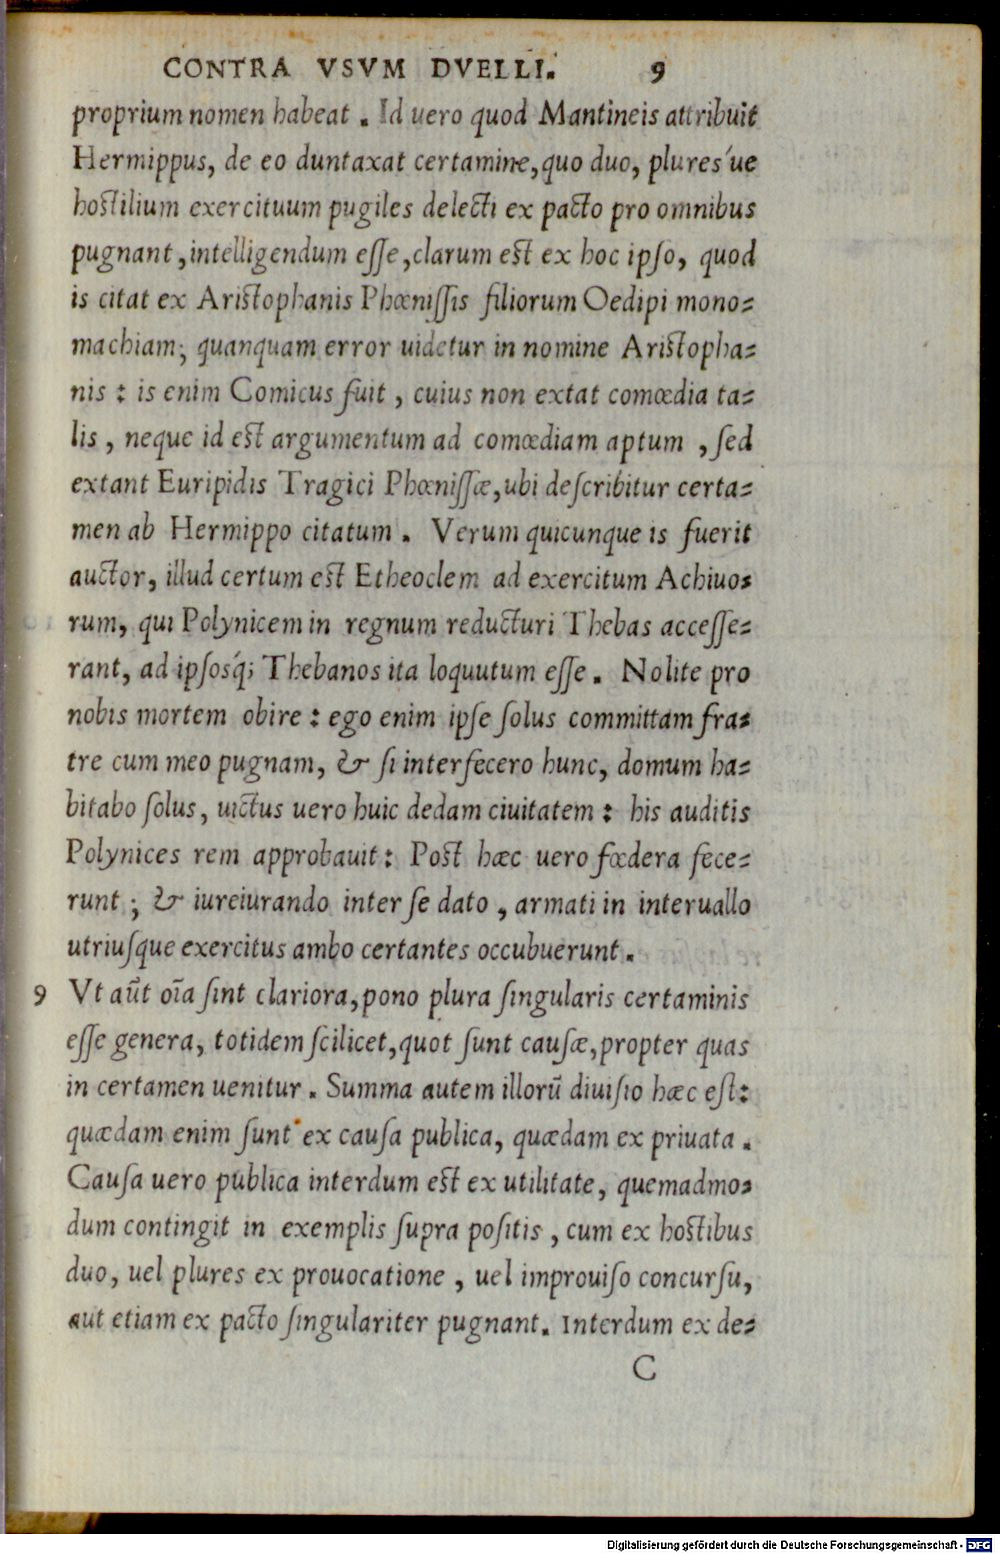 CONTRA VSVM DVELLI. 9
proprium nomen habeat . Id uero quod Mantineis attribuit
Hermippus, de eo duntaxat certamine,quo duo, plures'ue
hostilium exercituum pugiles delecti ex pacto pro omnibus
pugnant ,intelligendum eſſe ,clarum est ex hoc ipſo, quod
is citat ex Aristophanis Phœniſſis filiorum Oedipi mono=
machiam; quanquam error uidetur in nomine Aristopha=
nis : is enim Comicus fuit , cuius non extat comœdia ta=
lis , neque id est argumentum ad comœdiam aptum , ſed
extant Euripidis Tragici Phœniſſæ,ubi deſcribitur certa=
men ab Hermippo citatum . Verum quicunque is fuerit
auctor, illud certum est Etheoclem ad exercitum Achiuo=
rum, qui Polynicem in regnum reducturi Thebas acceſſe=
rant, ad ipſosq́; Thebanos ita loquutum eſſe . Nolite pro
nobis mortem obire : ego enim ipſe ſolus committam fra=
tre cum meo pugnam, & ſi interfecero hunc, domum ha=
bitabo ſolus, uictus uero huic dedam ciuitatem : his auditis
Polynices rem approbauit : Post hæc uero fœdera fece=
runt ; & iureiurando inter ſe dato , armati in interuallo
utriuſque exercitus ambo certantes occubuerunt .
9 Vt aūt oīa ſint clariora,pono plura ſingularis certaminis
eſſe genera, totidem ſcilicet,quot ſunt cauſæ,propter quas
in certamen uenitur . Summa autem illorū diuiſio hæc eſt:
quædam enim ſunt ex cauſa publica, quædam ex priuata .
Cauſa uero publica interdum est ex utilitate, quemadmo=
dum contingit in exemplis ſupra poſitis , cum ex hostibus
duo, uel plures ex prouocatione , uel improuiſo concurſu,
aut etiam ex pacto ſingulariter pugnant. Interdum ex de=
C
Digitalisierung gefördert durch die Deutsche Forschungsgemeinschaft - DFG